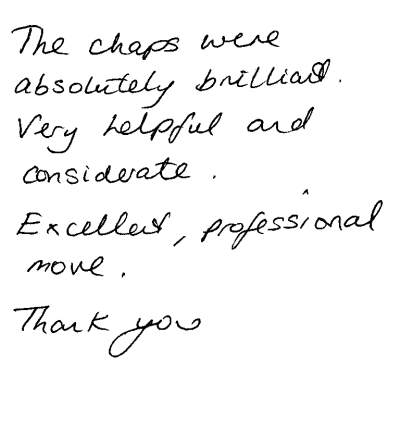 The chaps were
absolutely brilliant.
Very helpful and
considerate.
Excellent, professional
move.
Thank you